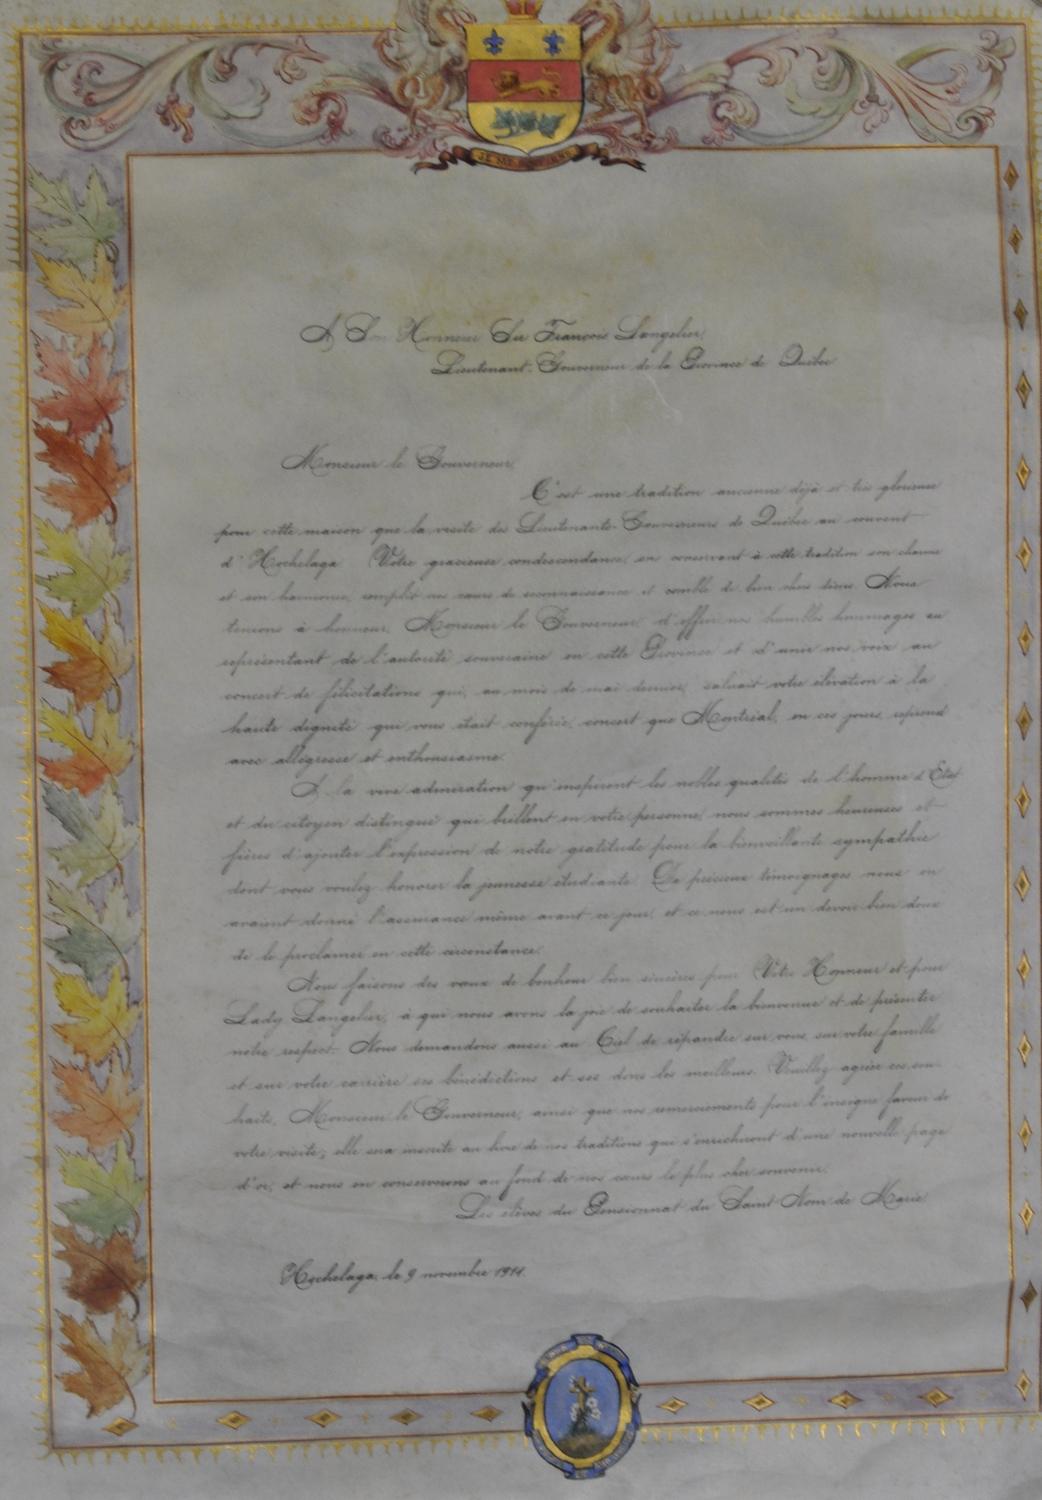 JE ME SOUVIENS
A Son Honneur Sir François Langelier,
Lieutenant-Gouverneur de la Province de Québec
Monsieur le Gouverneur,
C'est une tradition ancienne déjà et très glorieuse
pour cette maison que la visite des Lieutenants-Gouverneurs de Québec au couvent
d'Hochelaga. Votre gracieuse condescendance, en conservant à cette tradition son charme
et son harmonie, remplit nos cœurs de reconnaissance et comble de bien chers désirs. Nous
tenons à honneur, Monsieur le Gouverneur, d'offrir nos humbles hommages au
représentant de l'autorité souveraine en cette Province et d'unir nos voix au
concert de félicitations qui, au mois de mai dernier, saluait votre élévation à la
haute dignité qui vous était conférée, concert que Montréal, en ces jours, reprend
avec allégresse et enthousiasme.
A la vive admiration qu'inspirent les nobles qualités de l'homme d'Etat
et du citoyen distingué qui brillent en votre personne, nous sommes heureuses et
fières d'ajouter l'expression de notre gratitude pour la bienveillante sympathie
dont vous voulez honorer la jeunesse étudiante. De précieux témoignages nous en
avaient donné l'assurance même avant ce jour, et ce nous est un devoir bien doux
de le proclamer en cette circonstance.
Nous faisons des vœux de bonheur bien sincères pour Votre Honneur et pour
Lady Langelier, à qui nous avons la joie de souhaiter la bienvenue et de présenter
notre respect. Nous demandons aussi au Ciel de répandre sur vous, sur votre famille
et sur votre carrière ses bénédictions et ses dons les meilleurs. Veuillez agréer ces sou-
haits, Monsieur le Gouverneur, ainsi que nos remerciements pour l'insigne faveur de
votre visite; elle sera inscrite au livre de nos traditions qui s'enrichiront d'une nouvelle page
d'or, et nous en conserverons au fond de nos cœurs le plus cher souvenir.
Les élèves du Pensionnat du Saint Nom de Marie
Hochelaga, le 9 novembre 1911.